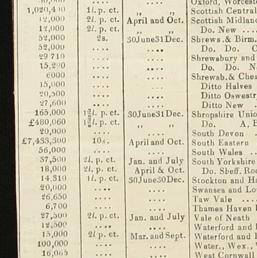 Oxford, Worcester
1,020,410 1l. p. ct. „ „ Scottish Central
12,000 2l. p. ct. April and Oct. Scottish Midland
12,000 2l. p. ct. .... Do. New ...
52,000 2s. 30June31Dec. Shrews. & Birm.
52,000 .... .... Do. Do. C
29,710 .... .... Shrewsbury and
15,290 .... .... Do. Do. N
6000 .... .... Shrewsb. & Ches
15,000 .... .... Ditto Halves
15,000 .... .... Ditto Oswestry
20,500 .... .... Ditto New
27,600 .... ....
165,000 1¾l. p. ct. 30June31Dec. Shropshire Unio
£480,060 1¾l. p. ct. „ „ Do. A, B
20,000 .... .... South Devon
£7,433,300 10s. April and Oct. South Eastern
56,000 .... .... South Wales
37,500 2l. p. ct. Jan. and July South Yorkshire
18,000 2l. p. ct. April & Oct. Do. Sheff. Roc
14,310 .... 30June30Dec. Stockton and Ha
20,000 .... .... Swansea and Lou
26,650 .... .... Taw Vale ...
6,700 .... .... Thames Haven
27,500 2l. p. ct. Jan. and July Vale of Neath
12,500 .... .... Waterford and
15,000 2l. p. ct. Mar. and Sept. Waterford and
100,000 .... .... Water., Wex., W
16,065 .... .... West Cornwall